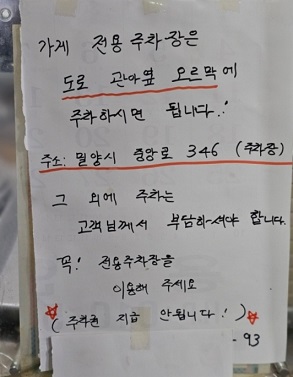 가게 전용 주차장은
도로 관아옆 오르막에
주차하시면 됩니다.!
주소: 밀양시 중앙로 346 (주차장)
그 외에 주차는
고객님께서 부담하셔야 합니다.
꼭! 전용주차장을
이용해 주세요
(주차권 지급 안됩니다!)
- 93